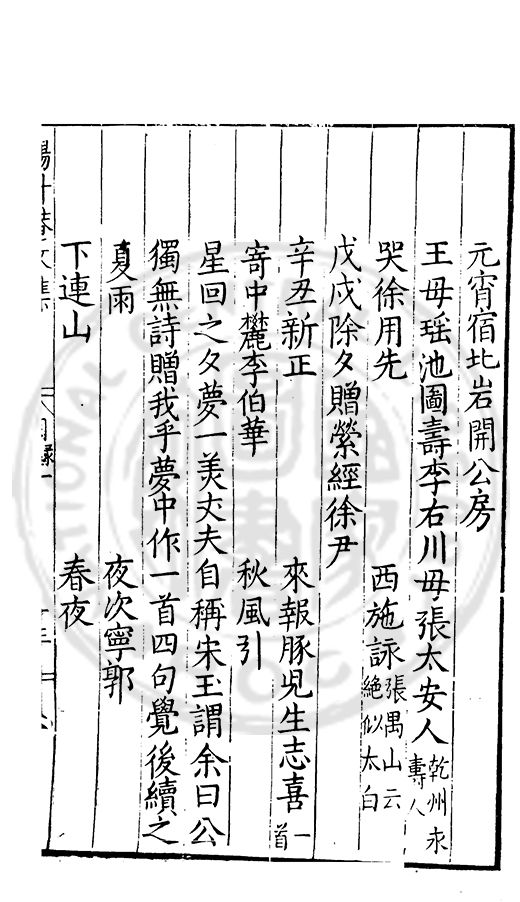 元宵宿北岩開公房
王母瑶池圖壽李右川母張太安人乾州永壽人
哭徐用先　西施詠張禺山云絶似太白
戊戌除夕贈滎經徐尹
辛丑新正　來報豚児生志喜一首
寄中麓李伯華　秋風引
星回之夕夢一美丈夫自稱宋玉謂余曰公
獨無詩贈我乎夢中作一首四句覺後續之
夏雨　夜次寧郭
下連山　春夜
文集
目録一